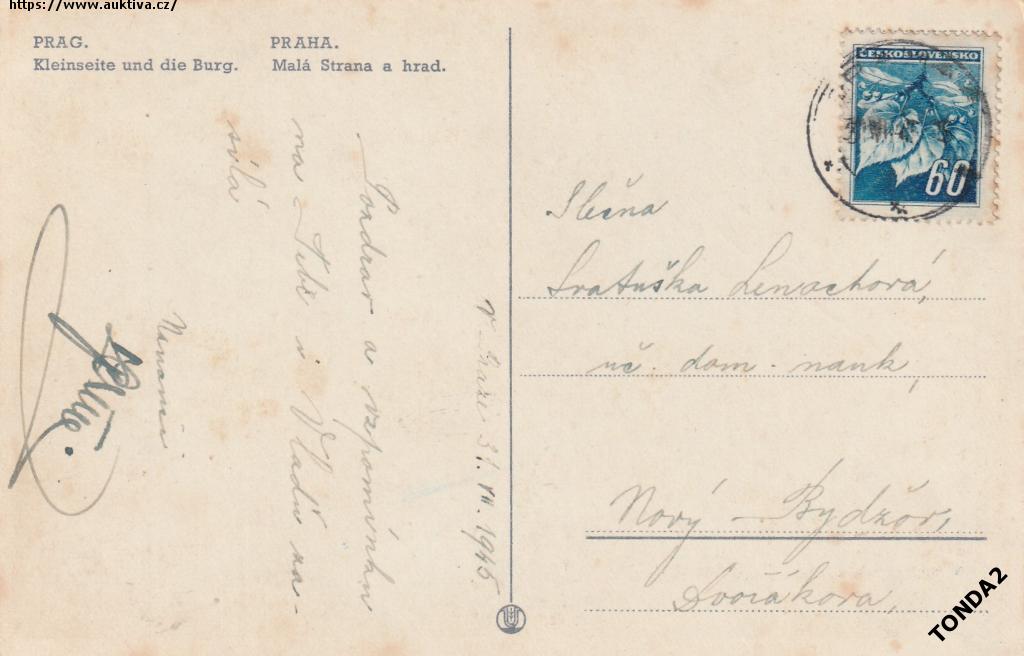 https://www.auktiva.cz/
PRAG.
Kleinseite und die Burg.
PRAHA.
Malá Strana a hrad.
ČESKOSLOVENSKO
60
v Praze 31. VII. 1945
Pozdrav a vzpomínku
na Tebe i Vlaďu za-
sílá
Slečna
Svatuška Lenochová,
uč. dom. nauk,
Nový Bydžov,
Dvořákova,
TONDA2